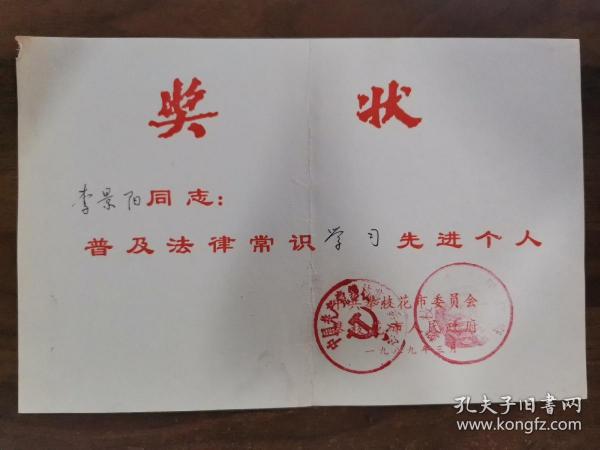 奖状
李景阳同志：
普及法律常识学习先进个人
中共攀枝花市委员会
市人民政府
一九八九年三月
孔夫子旧书网
www.kongfz.com